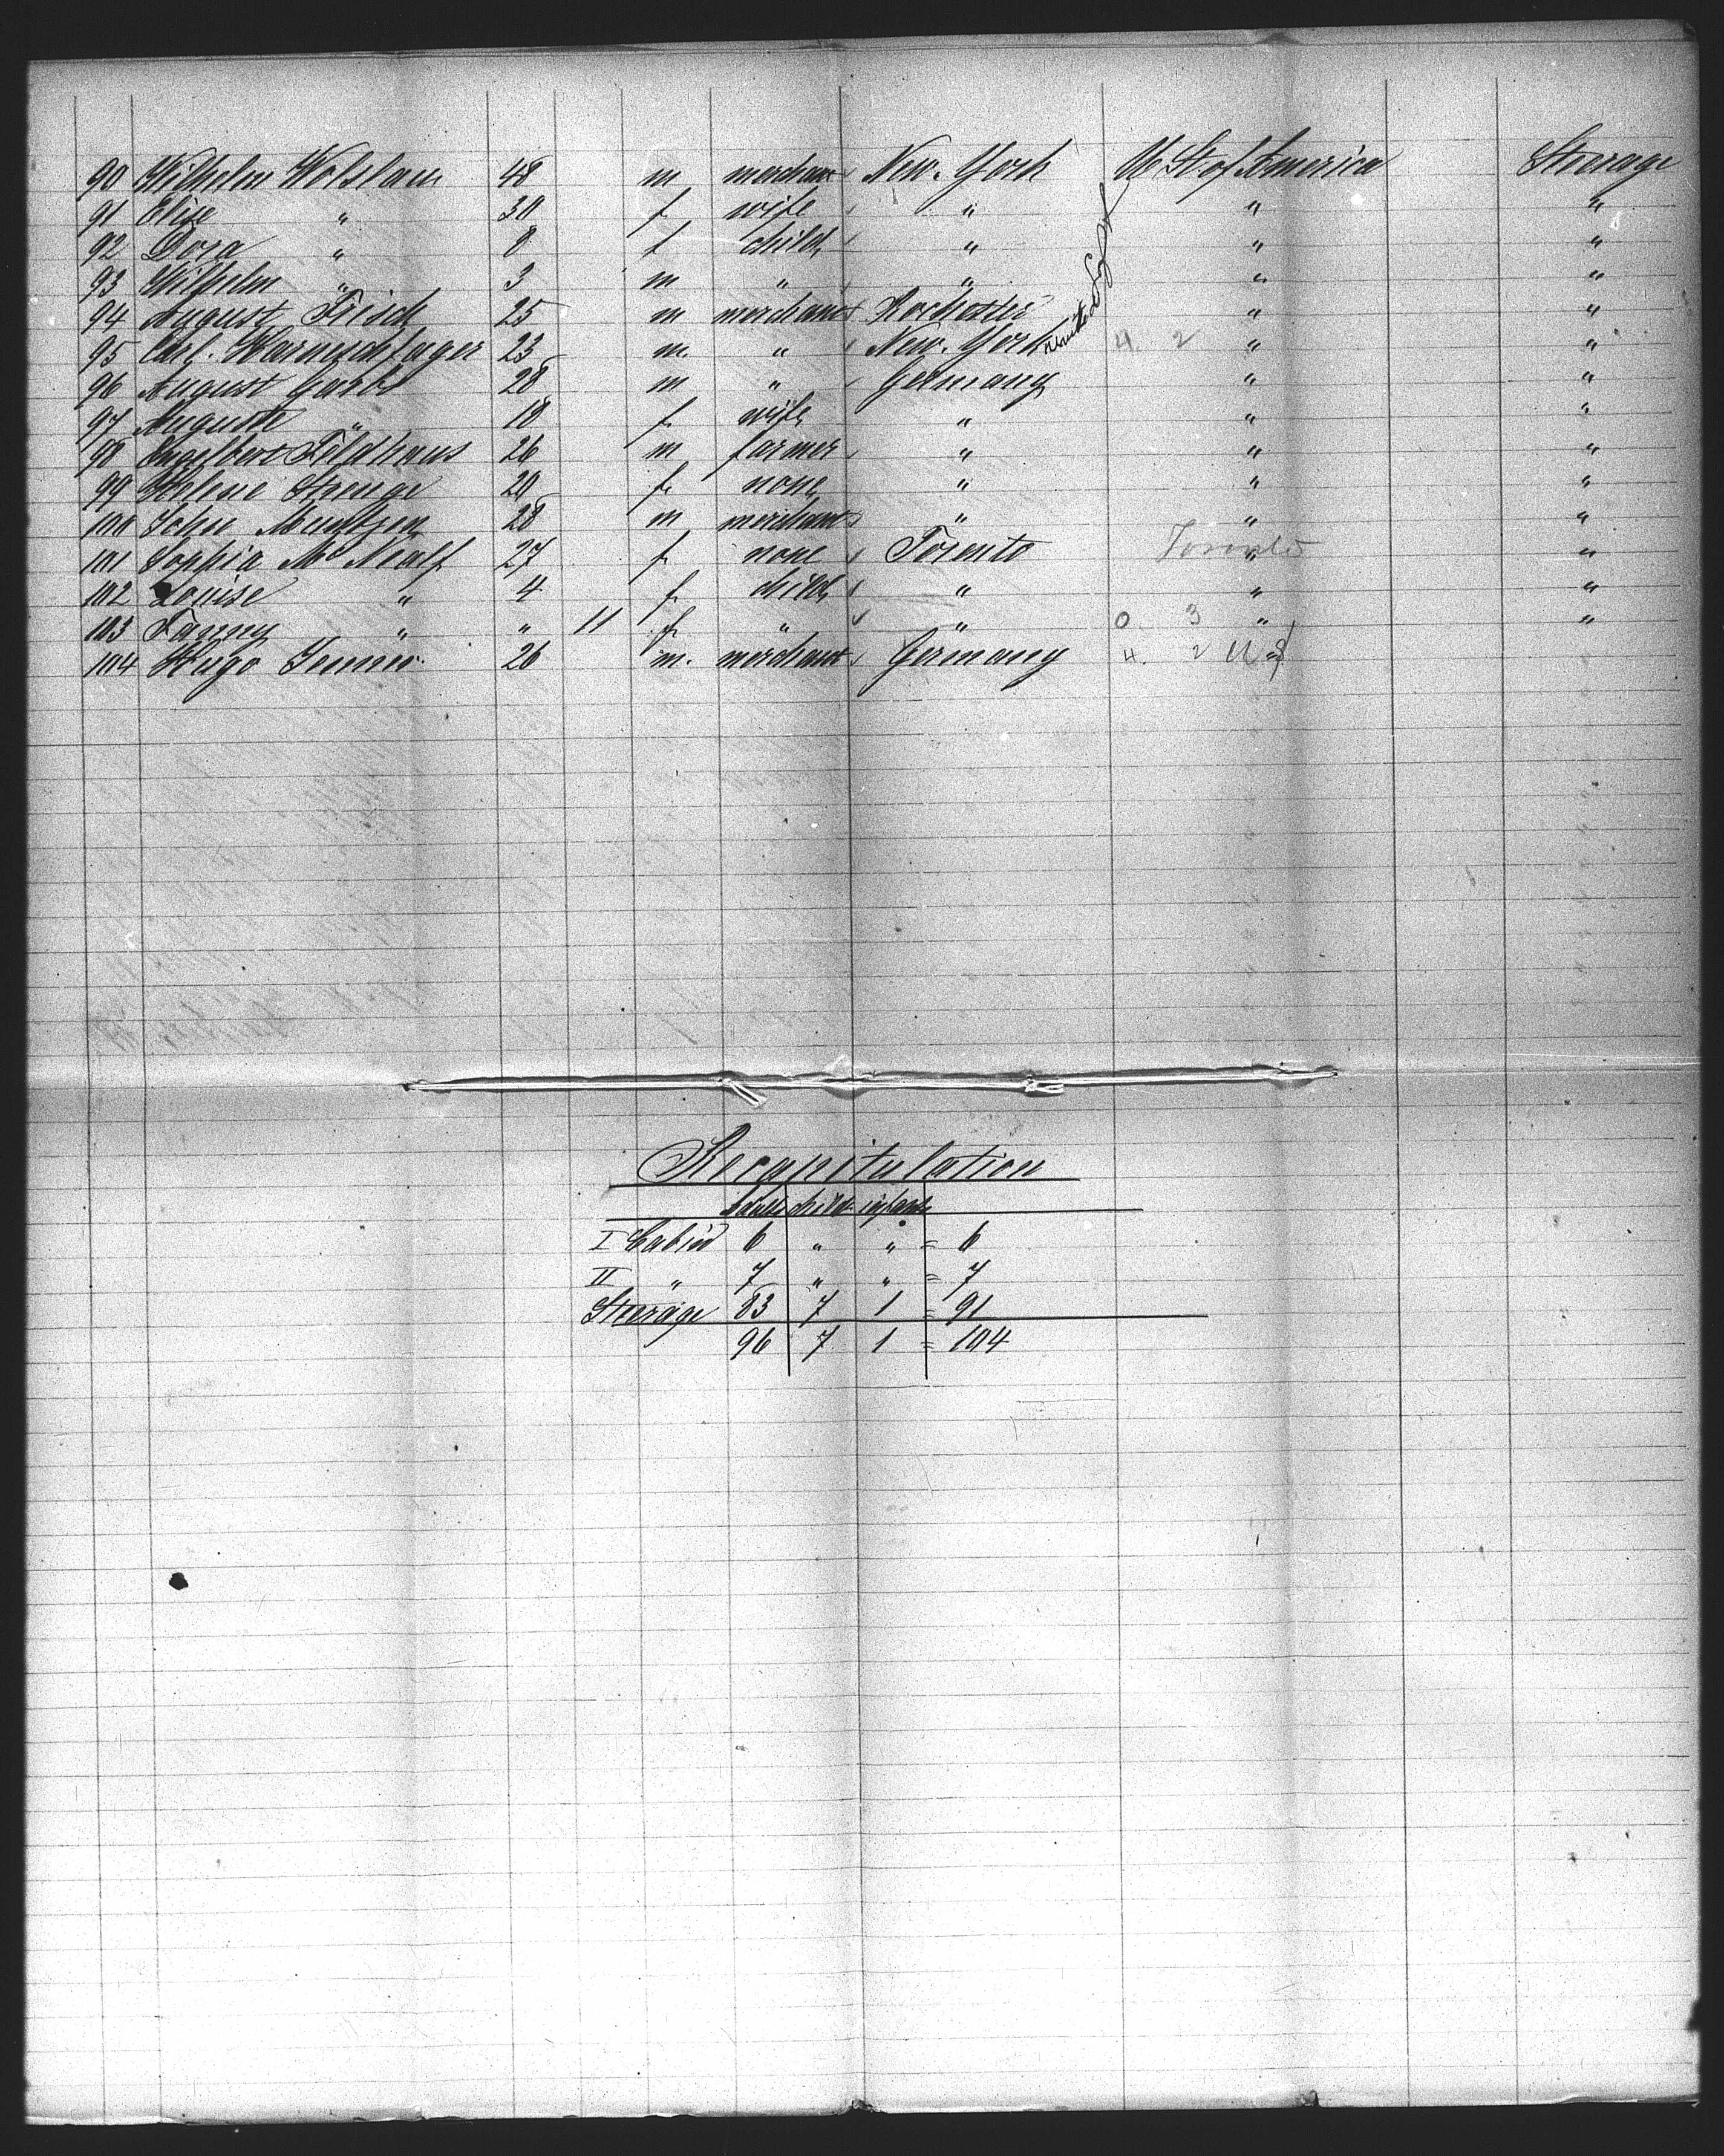 90 Wilhelm Wolslau 48 m merchant New-York U St of America Steerage
91 Elise " 30 f wife " " "
92 Dora " 8 f child " " "
93 Wilhelm " 3 m " " " "
94 August Frisch 25 m merchant Rochester " "
95 Carl Harnischfager 23 m. " New-York 4. 2 " "
96 August Garbe 28 m " Germany " "
97 Auguste " 18 f wife " " "
98 Engelbert Feldhaus 26 m farmer " " "
99 Helene Strenge 20 f none " " "
100 John Muntzen 28 m merchant " " "
101 Sophia Mc Nealf 27 f none Toronto Toronto " "
102 Louise " 4 f child " " "
103 Fanny " " 11 f " " 0 3 " "
104 Hugo 26 m. merchant Germany 4. 2 U S
Recapitulation
Adults child infants
I Cabin 6 " " = 6
II " 7 " " = 7
Steerage 83 7 1 = 91
96 7 1 = 104